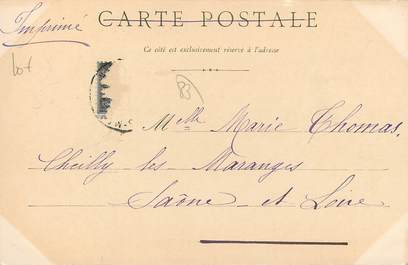 CARTE POSTALE
Imprimé
Ce côté est exclusivement réservé à l'adresse
lot
83
Melle Marie Thomas,
Cheilly les Maranges
Saône et Loire